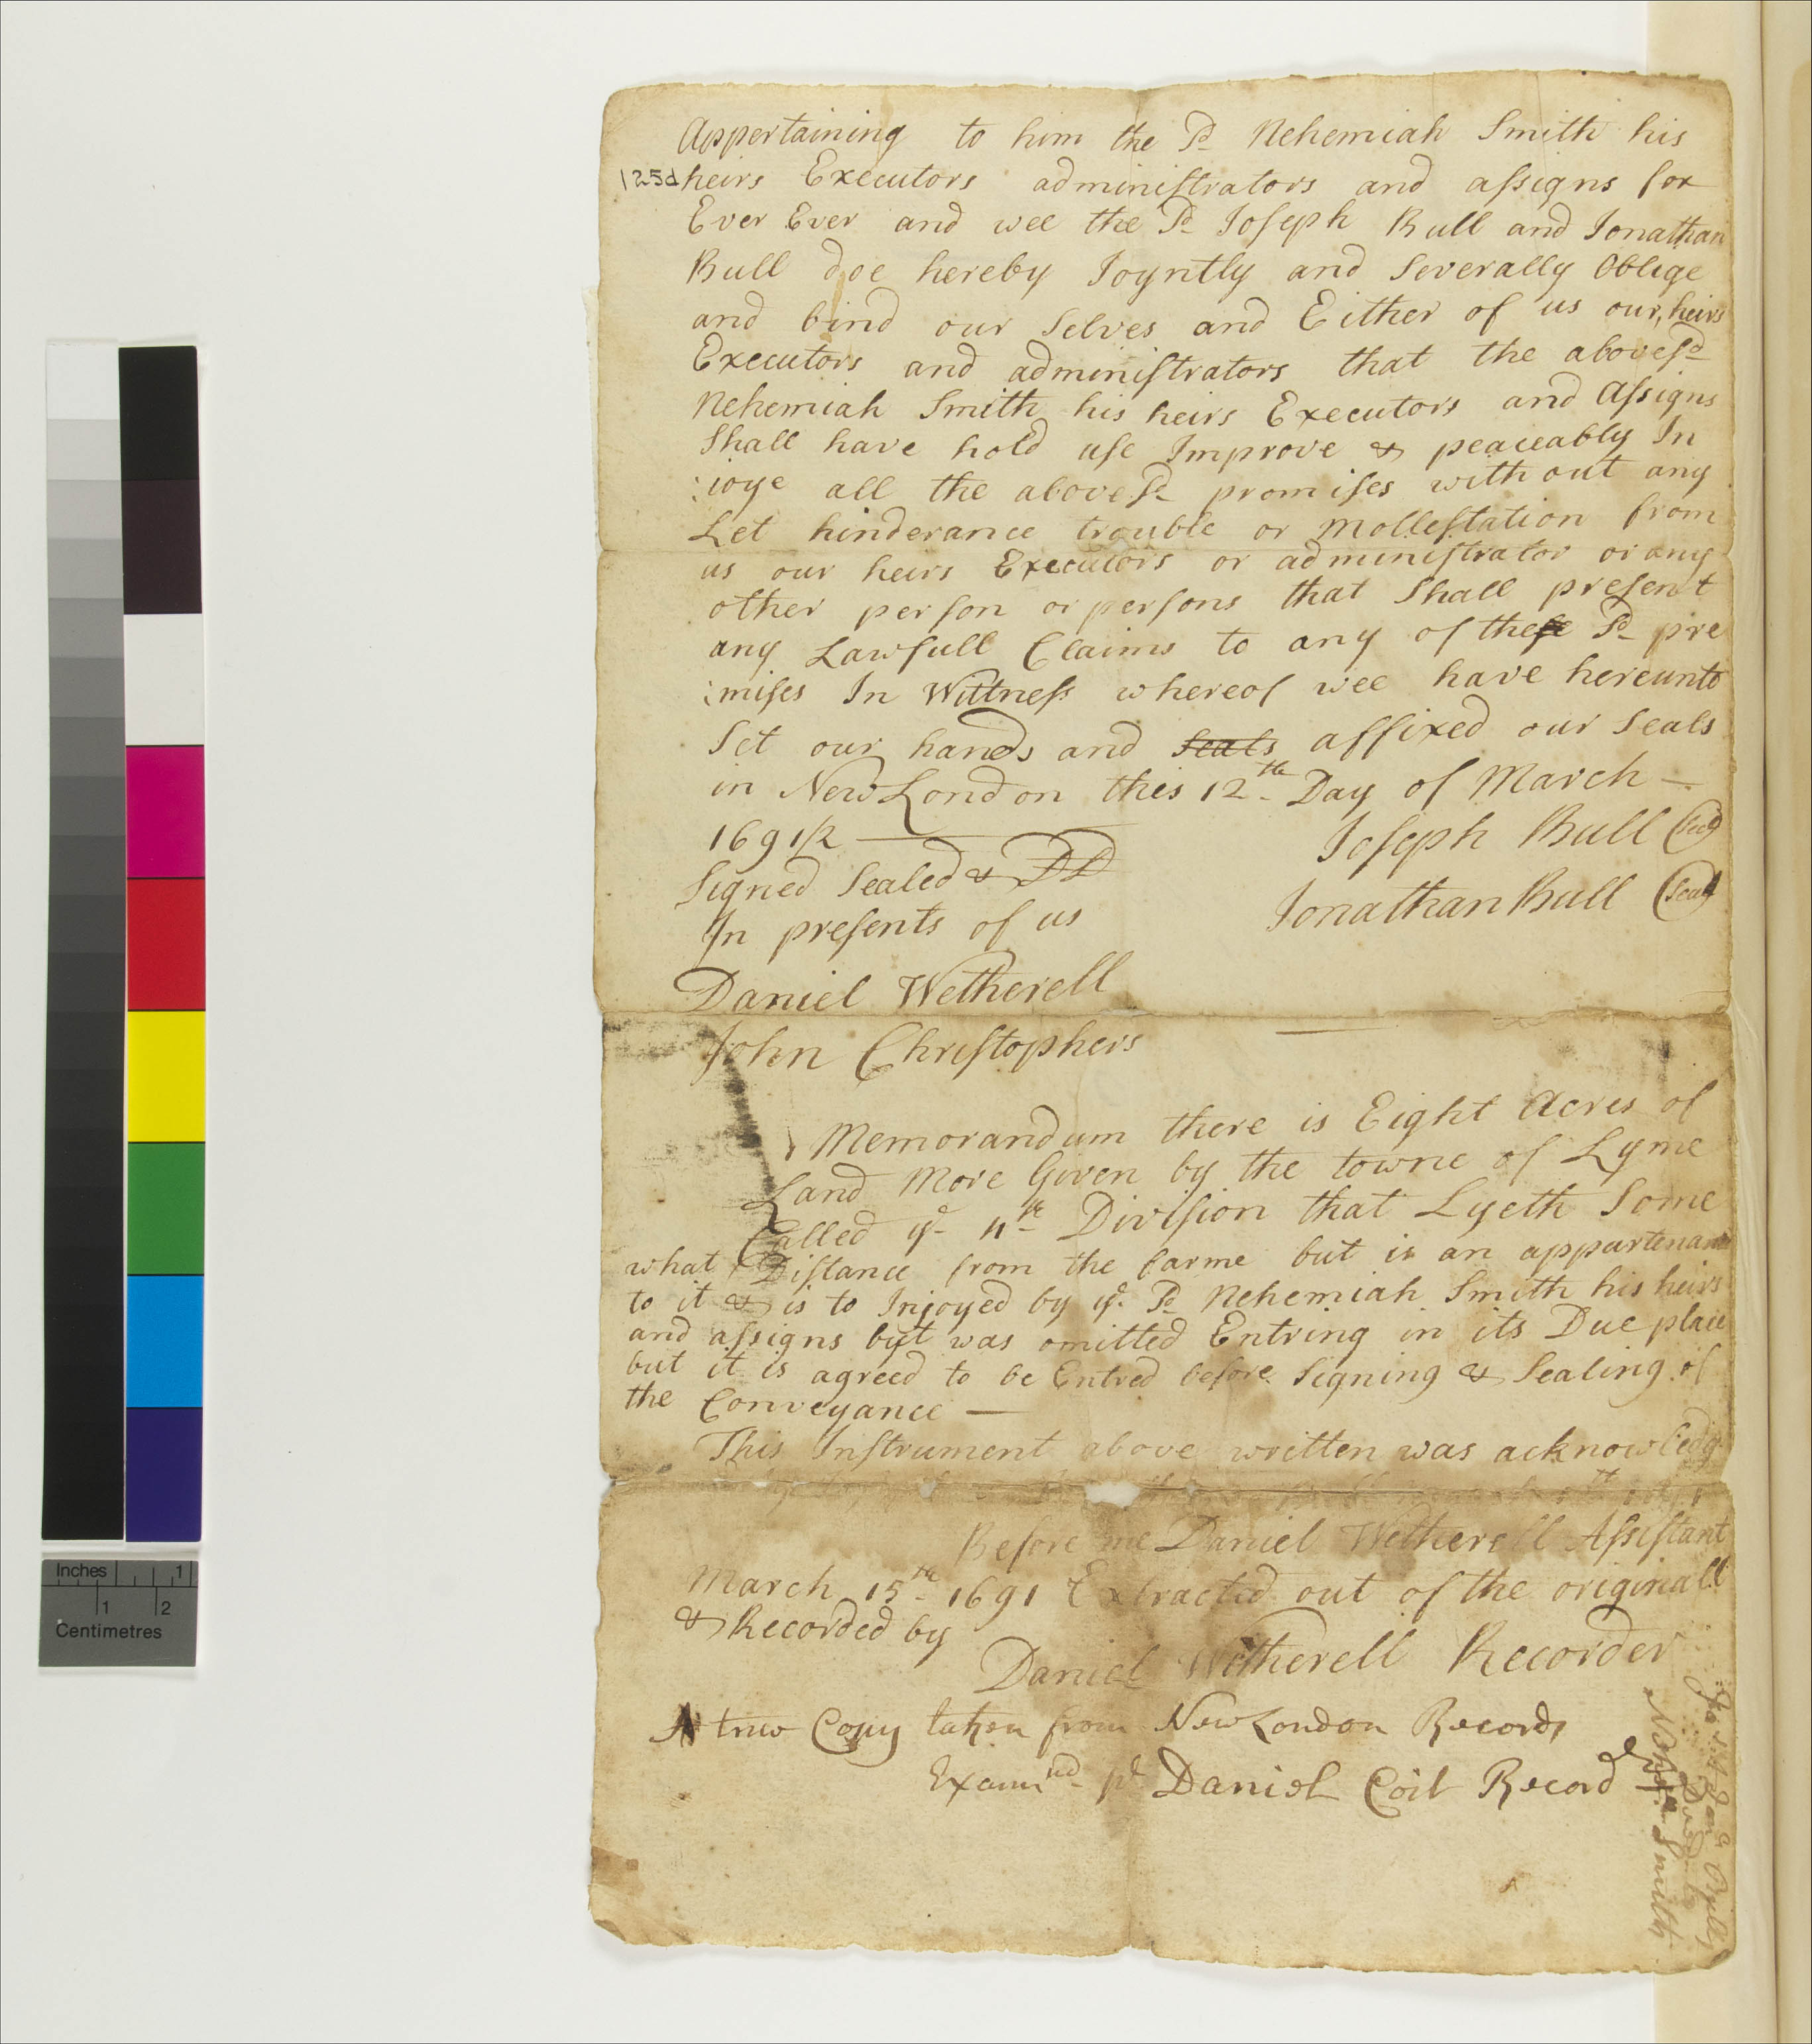 Appertaining to him the Sd Nehemiah Smith his
125d heirs Executors administrators and assigns for
Ever Ever and wee the Sd Joseph Bull and Jonathan
Bull doe hereby Joyntly and Severally Oblige
and bind our Selves and Either of us our heirs
Executors and administrators that the abovesd
Nehemiah Smith his heirs Executors and Assigns
Shall have hold use Improve & peaceably In
:ioye all the aboveSd promises without any
Let hinderance trouble or Mollestation from
us our heirs Executors or administrator or any
other person or persons that Shall present
any Lawfull Claims to any of the Sd pre
:mises In Wittness whereof wee have hereunto
Set our hands and Seals affixed our Seals
in New London this 12th Day of March —
1691/2
Joseph Bull (Seal)
Signed Sealed & DD
Jonathan Bull (Seal)
In presents of us
Daniel Wetherell
John Christophers
Memorandum there is Eight Acres of
Land More Given by the towne of Lyme
Called ye 4th Division that Lyeth Some
what Distance from the farme but is an appurtenance
to it & is to Injoyed by ye Sd Nehemiah Smith his heirs
and assigns but was omitted Entring in its Due place
but it is agreed to be Entred before Signing & Sealing of
the Conveyance —
This Instrument above written was acknowledg
Before me Daniel Wetherell Assistant
March 15th 1691 Extracted out of the originall
& Recorded by
Daniel Wetherell Recorder
A true Copy taken from New London Records
Examind pr Daniel Coit Recordr
Deed to
Smith